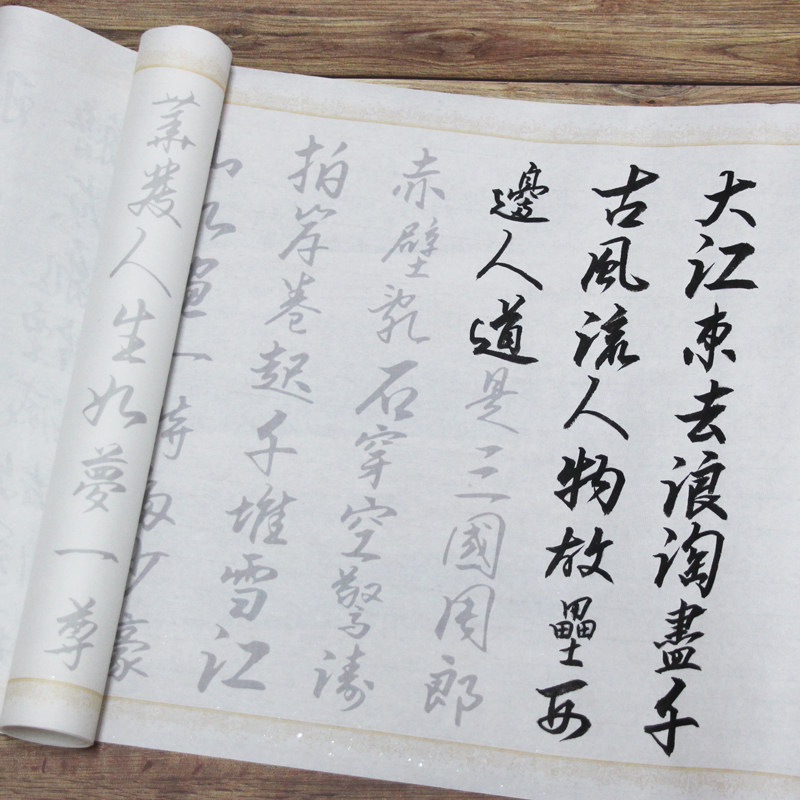 大江東去浪淘盡千
古風流人物故壘西
邊人道是三國周郎
赤壁亂石穿空驚濤
拍岸卷起千堆雪江
山如畫一時多少豪
華發人生如夢一尊